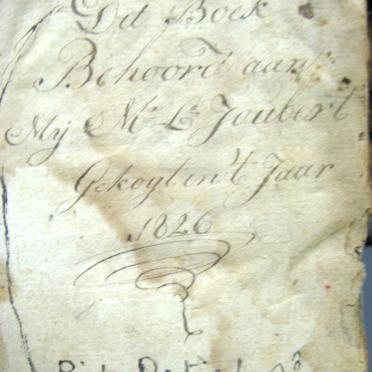 Dit Boek
Behoord aan
Mij Mr. Ls. Joubert
Gekogt in't Jaar
1826